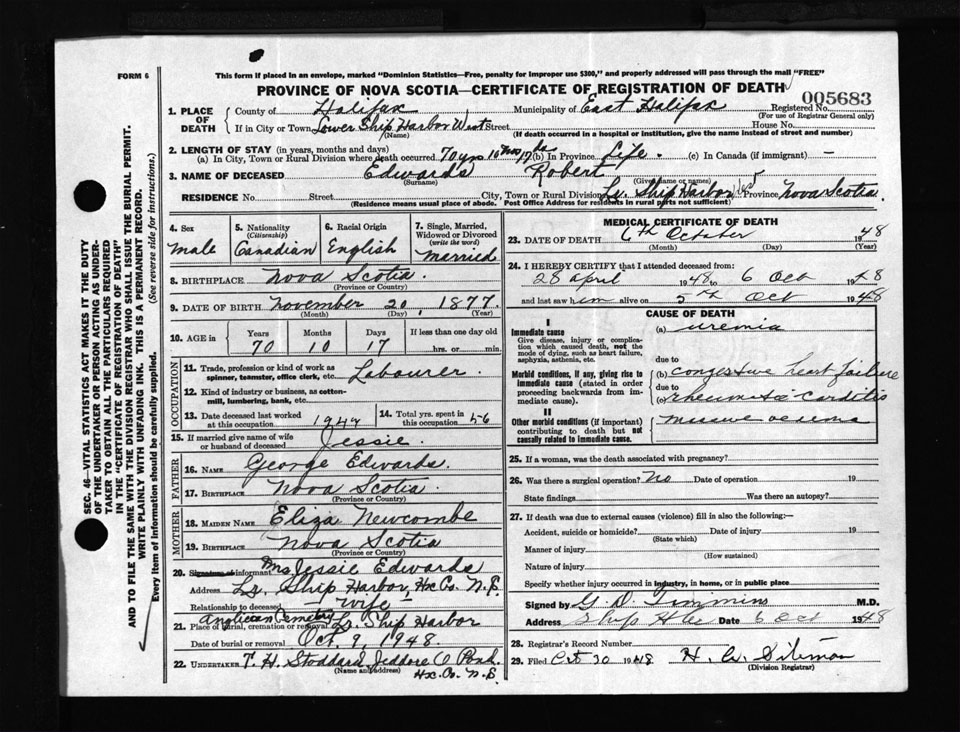 FORM 6
This form if placed in an envelope, marked "Dominion Statistics—Free, penalty for improper use $300," and properly addressed will pass through the mail "FREE"
PROVINCE OF NOVA SCOTIA—CERTIFICATE OF REGISTRATION OF DEATH
005683
1. PLACE OF DEATH
County of Halifax Municipality of East Halifax Registered No.
(For use of Registrar General only)
If in City or Town Lower Ship Harbor West Street House No.
(Name) (If death occurred in a hospital or institution, give the name instead of street and number)
2. LENGTH OF STAY (in years, months and days)
(a) In City, Town or Rural Division where death occurred 70 yrs 10 mos 17 ds (b) In Province Life. (c) In Canada (if immigrant) —
3. NAME OF DECEASED Edwards Robert
(Surname) (Given name or names)
RESIDENCE No. Street City, Town or Rural Division Lr. Ship Harbor West Province Nova Scotia
(Residence means usual place of abode. Post Office Address for residents in rural parts not sufficient)
4. Sex
Male
5. Nationality
(Citizenship)
Canadian
6. Racial Origin
English
7. Single, Married, Widowed or Divorced
(write the word)
Married
8. BIRTHPLACE Nova Scotia.
(Province or Country)
9. DATE OF BIRTH November 20, 1877
(Month) (Day) (Year)
10. AGE in Years Months Days If less than one day old
70 10 17 hrs. or min.
OCCUPATION
11. Trade, profession or kind of work as spinner, teamster, office clerk, etc. Labourer.
12. Kind of industry or business, as cotton-mill, lumbering, bank, etc.
13. Date deceased last worked at this occupation 1947
14. Total yrs. spent in this occupation 56
15. If married give name of wife or husband of deceased Jessie.
FATHER
16. NAME George Edwards.
17. BIRTHPLACE Nova Scotia.
(Province or Country)
MOTHER
18. MAIDEN NAME Eliza Newcombe
19. BIRTHPLACE Nova Scotia
(Province or Country)
20. Signature of informant Mrs Jessie Edwards
Address Lr. Ship Harbor, Hx Co. N.S.
Relationship to deceased Wife
Anglican Cemetery
21. Place of burial, cremation or removal Lr. Ship Harbor
Date of burial or removal Oct 9, 1948.
22. UNDERTAKER T. H. Stoddard, Jeddore
(Name and address)
Hx. Co. N.S.
MEDICAL CERTIFICATE OF DEATH
23. DATE OF DEATH 6th October 1948
(Month) (Day) (Year)
24. I HEREBY CERTIFY that I attended deceased from:
28 April 1948 to 6 Oct 1948
and last saw him alive on 5th Oct 1948
CAUSE OF DEATH
I
Immediate cause
Give disease, injury or complication which caused death, not the mode of dying, such as heart failure, asphyxia, asthenia, etc.
(a) uremia
due to
Morbid conditions, if any, giving rise to immediate cause (stated in order proceeding backwards from immediate cause).
(b) congestive heart failure
due to
(c) rheumatic carditis
II
Other morbid conditions (if important) contributing to death but not causally related to immediate cause.
oedema
25. If a woman, was the death associated with pregnancy?
26. Was there a surgical operation? No Date of operation 19
State findings Was there an autopsy?
27. If death was due to external causes (violence) fill in also the following:—
Accident, suicide or homicide? Date of injury 19
(State which)
Manner of injury
(How sustained)
Nature of injury
Specify whether injury occurred in industry, in home, or in public place
Signed by G. D. Timmins M.D.
Address Ship Date 6 Oct 1948
28. Registrar's Record Number
29. Filed Oct 30 1948
(Division Registrar)
SEC. 46—VITAL STATISTICS ACT MAKES IT THE DUTY
OF THE UNDERTAKER OR PERSON ACTING AS UNDER-
TAKER TO OBTAIN ALL THE PARTICULARS REQUIRED
IN THE "CERTIFICATE OF REGISTRATION OF DEATH"
AND TO FILE THE SAME WITH THE DIVISION REGISTRAR WHO SHALL ISSUE THE BURIAL PERMIT.
WRITE PLAINLY WITH UNFADING INK. THIS IS A PERMANENT RECORD.
Every item of Information should be carefully supplied. (See reverse side for instructions.)